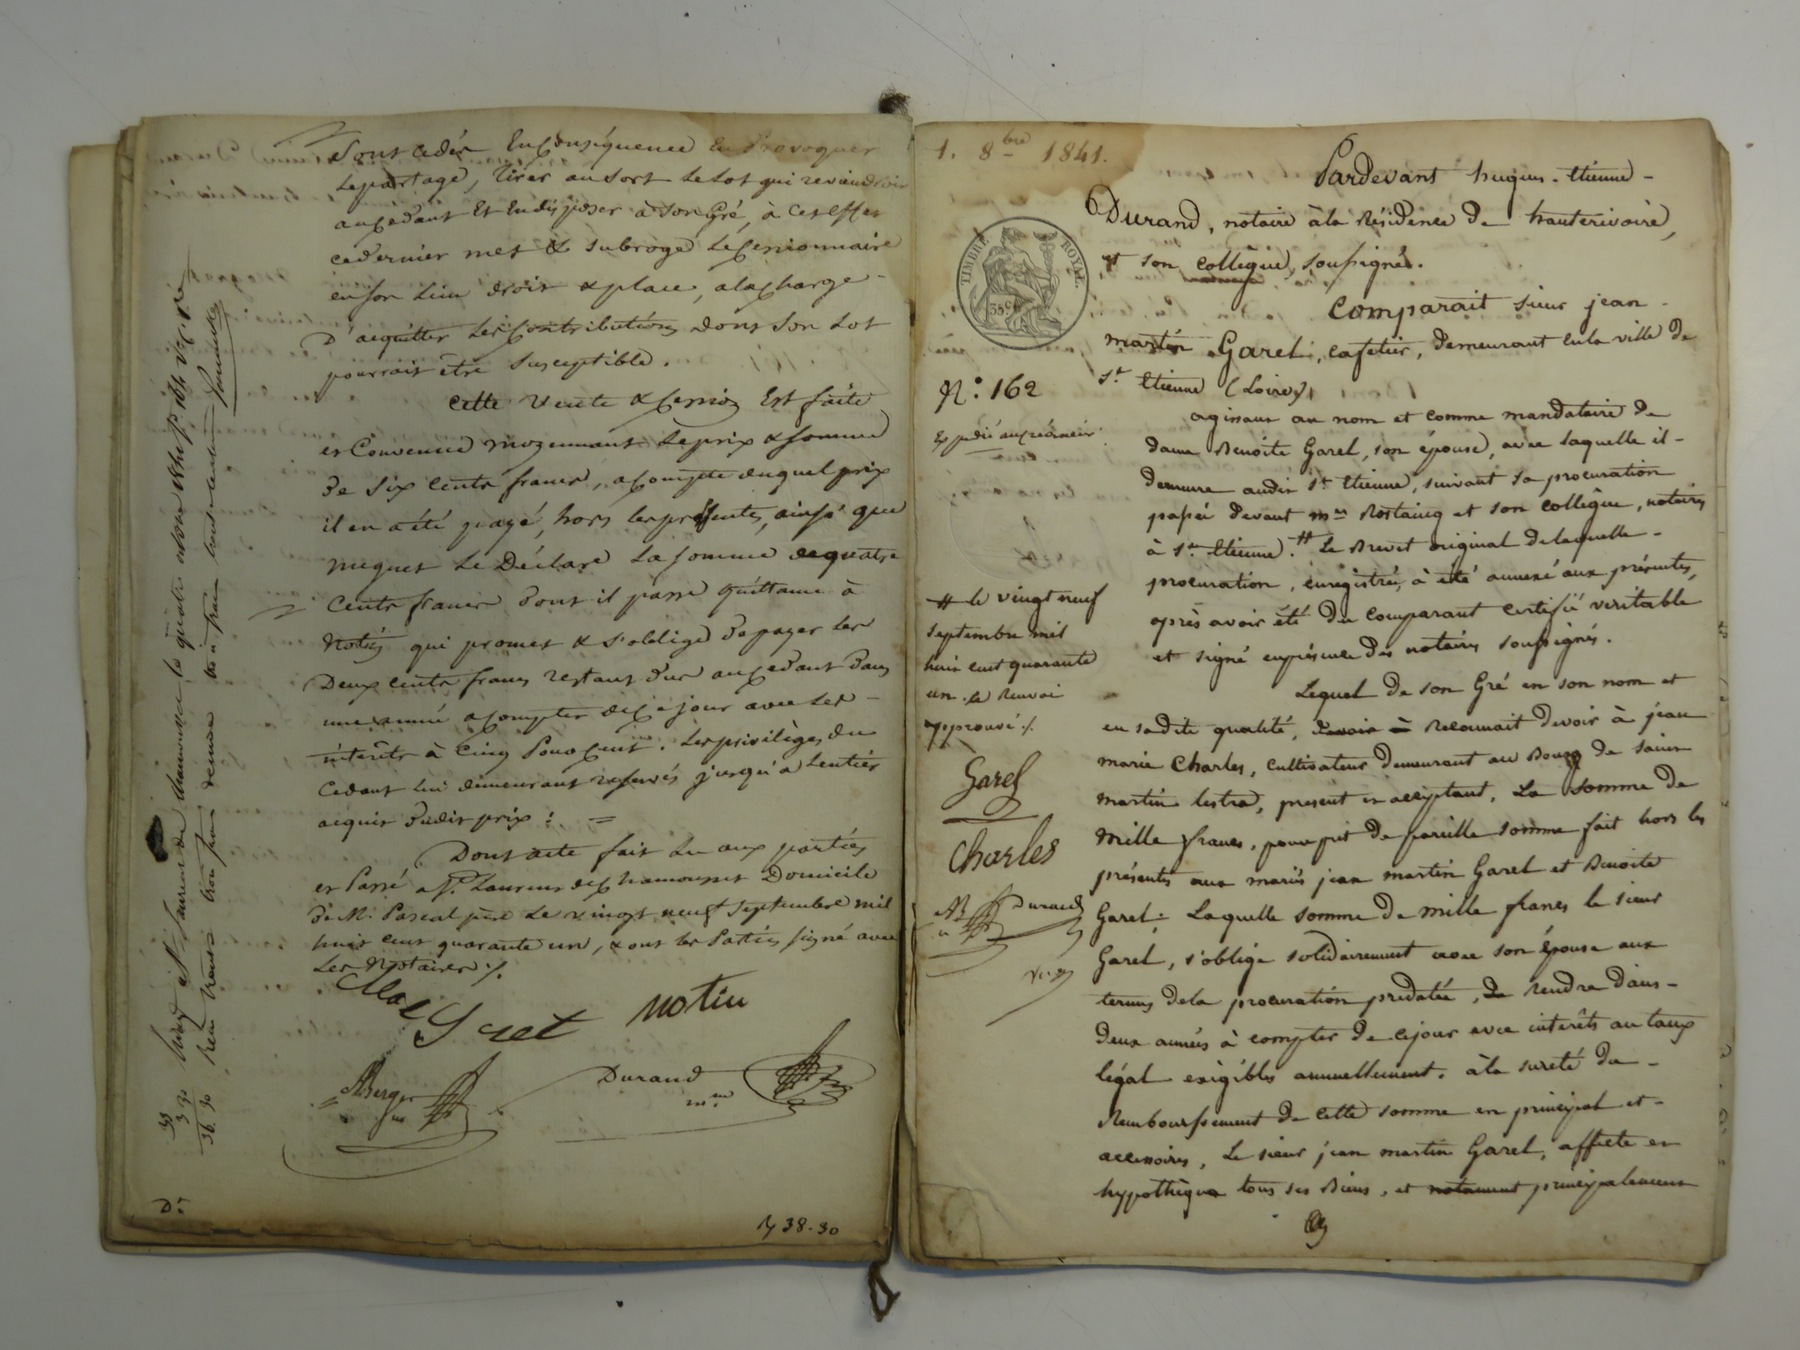 Sont cédés En Conséquence En Provoquer
Le partage, tirer au sort Le Lot qui reviendroit
au Cedant Et En disposer à Son Gré, à Cet effet
ce dernier met & subroge Le Cessionnaire
en son Lieu droit & place, a la Charge
D'acquitter Les Contributions dont Son Lot
pourrait être Susceptible.
Cette Vente & Cession Est faite
et Convenue moyennant Le prix & Somme
de Six Cents francs, a Compte duquel prix
il en a été payé, hors les présentes, ainsi que
Le Déclare La Somme de quatre
Cents francs dont il passe Quittance à
Notin qui promet & s'oblige de payer les
Deux Cents francs restant due au Cedant dans
une année a Compter de Ce jour avec Les
intérêts à Cinq Pour Cent. Les privilèges du
Cedant lui demeurant reservés jusqu'a Lentier
acquit dudit prix : =
Dont acte fait Lu aux parties
et Passé a St. Laurent de Chamousset Domicile
de M. Pascal père Le vingt neuf Septembre mil
huit cent quarante un, & ont les Parties signé avec
Les Notaires ./.
notin
Berger
Durand
nre
33
3 30
36 30
Dt
38-30
1. 8bre 1841.
TIMBRE ROYAL
35c
N.° 162
Expédié au créancier
Pardevant hugues-Etienne-
Durand, notaire à la Résidence de hauterivoire,
et son collègue, soussignés.
Comparait sieur jean-
martin Garel, cafetier, demeurant en la ville de
St Etienne (Loire)
agissant au nom et comme mandataire de
dame Benoite Garel, son épouse, avec laquelle il-
demeure audit St Etienne, suivant sa procuration
passée devant me Rostaing et son collègue, notaires
à St Etienne. # Le Brevet original de laquelle-
procuration, enregistrée, à été annexé aux présentes,
après avoir été du comparant certifié veritable
et signé en présence des notaires soussignés.
Lequel de son Gré en son nom et
en sadite qualité, devoir à Reconnait devoir à jean
marie Charles, cultivateur demeurant au Bourg de saint
martin lestra, present et acceptant, La somme de
Mille francs, pour prêt de pareille somme fait hors les
présentes aux mariés jean martin Garel et Benoite
Garel. Laquelle somme de mille francs le sieur
Garel, s'oblige solidairement avec son épouse aux
termes de la procuration predatée, de rendre dans-
deux années à compter de ce jour avec intérêts au taux
légal exigibles annuellement. à la sureté du-
Remboursement de cette somme en principal et-
accessoires, Le sieur jean martin Garel, affecte et
hypothèque tous ses Biens, et notament principalement
# le vingt neuf
septembre mil
huit cent quarante
un. le renvoi
approuvé ./.
Garel
Charles
AB
Durand